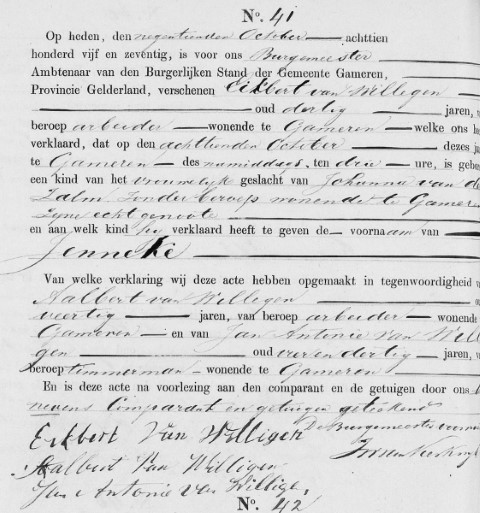 No. 41
Op heden, den negentienden October achttien
honderd vijf en zeventig, is voor ons Burgemeester
Ambtenaar van den Burgerlijken Stand der Gemeente Gameren,
Provincie Gelderland, verschenen Eikbert van Willigen
oud dertig jaren, v
beroep arbeider wonende te Gameren welke ons he
verklaard, dat op den achttienden October dezes ja
te Gameren des namiddags, ten drie ure, is gebo
een kind van het vrouwelijk geslacht van Johanna van de
Zalm, zonder beroep wonende te Gameren
zijne echtgenoote
en aan welk kind hij verklaard heeft te geven de voornaam van
Jenneke
Van welke verklaring wij deze acte hebben opgemaakt in tegenwoordigheid v
Aalbert van Willigen ou
veertig jaren, van beroep arbeider wonende
Gameren en van Jan Antonie van Willi
gen oud vier en dertig jaren, v
beroep timmerman wonende te Gameren
En is deze acte na voorlezing aan den comparant en de getuigen door ons
nevens Comparant en getuigen geteekend
Eikbert Van Willigen De Burgemeester voorn
Aalbert Van Willigen
Jan Antonie van Willigen
No. 42